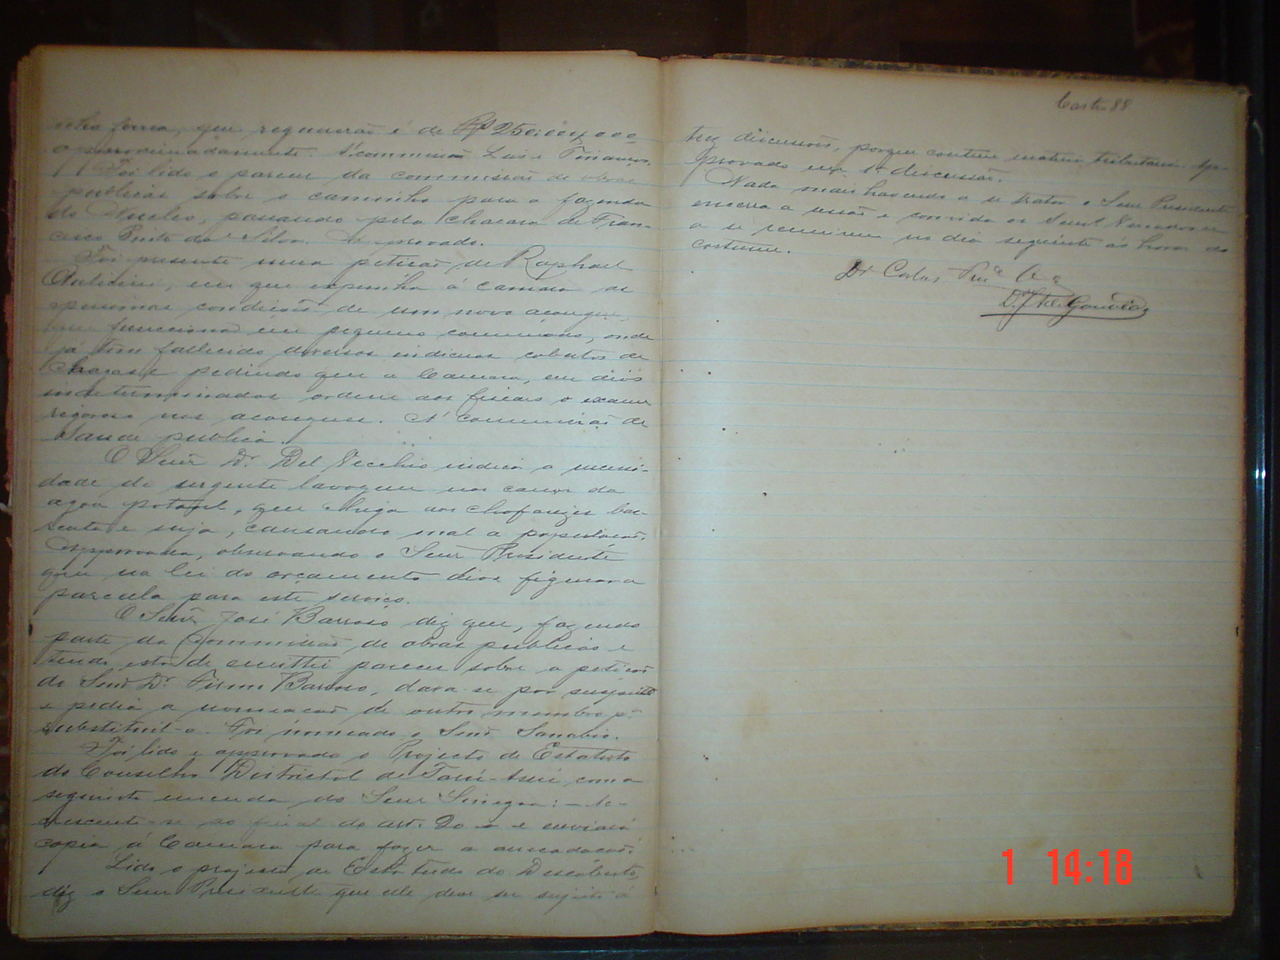 forma, que requereu é de Rs 250:000$000
approximadamente. Á commissão Leis e Finanças.
Foi lido o parecer da commissão de obras
publicas sobre o caminho para a fazenda
do Nucleo, passando pela chacara de Fran-
cisco Brito da Silva. Approvado.
Foi presente uma petição de Raphael
em que expunha á Camara as
pessimas condições de um novo açougue
funcionar em pequeno commodo, onde
já tem fallecido diversos individuos cobertos de
chagas e pedindo que a Camara, em dias
indeterminados ordene aos fiscaes o exame
rigoroso nos açougues. Á commissão de
Saude publica.
O Senr Dr. Del Vecchio indica a neces-
dade de urgente lavagem nos canos da
agoa potavel, que chega aos chafarizes bar-
renta e suja, causando mal a população.
Approvada, observando o Senr Presidente
que na lei do orçamento deve figurar a
parcela para este serviço.
O Senr José Barroso diz que, fazendo
parte da Commissão de obras publicas e
tendo esta de emittir parecer sobre a petição
do Senr Dr. Firmo Barroso, dava-se por suspeito
e pedia a nomeação de outro membro pª
substituil-o. Foi nomeado o Senr Sanabio.
Foi lido e approvado o Projecto de Estatuto
do Conselho Districtal de com a
seguinte emenda do Senr : — Ac-
crescente-se ao final do art. 20 — e enviará
copia á Camara para fazer a arrecadação.
Lido o projecto de Estatuto do Descoberto,
diz o Senr Presidente que elle deve ser sujeito á
Castro 88
trez discussões, porque contem materia tributaria. Ap-
provado em 1ª discussão.
Nada mais havendo a se tratar o Senr Presidente
encerra a sessão e convida os Senrs Vereadores
a se reunirem no dia seguinte ás horas do
costume.
Dr Carlos